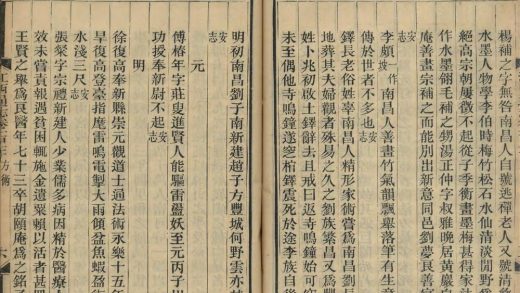 楊補之字無咎南昌人自號逃禪老人又號清
水墨人物學李伯時梅竹松石水仙清淡閒野
絕高宗朝屢徵不起從子季衡畫墨梅甚得家法
作水墨翎毛補之甥湯正仲字叔雅晚居黃巖
庵善畫宗補之而能別出新意同邑劉夢良善
安志
李頗一作坡南昌人善畫竹氣韻飄舉落筆有生意
傳於世者不多也安志
鐸長老俗姓辜南昌人精形家術嘗為南昌劉
地葬其夫婦觀者殊易之久之劉族繁昌又為豐
姓卜兆初啟土鐸辭去且戒曰返寺鳴鐘始可
未至偶他寺鳴鐘遂窆棺鐸震死於途李族自後
明初南昌劉子南新建趙子方豐城何野雲亦
安志
元
傅椿年字莊叟進賢人能驅雷蠱妖至元丙子
功授奉新尉不起安志
明
徐復高奉新縣崇元觀道士通法術永樂十五年
旱復高登臺指麾雷鳴電掣大雨傾盆魚蝦
水淺三尺安志
張粲字宗禮新建人少業儒多病因精於醫療人
效未嘗責報遇貧困輒施金遺粟賴以活者甚
王賢之舉為良醫年七十三卒胡頤庵為之銘
江西通志
方術
六